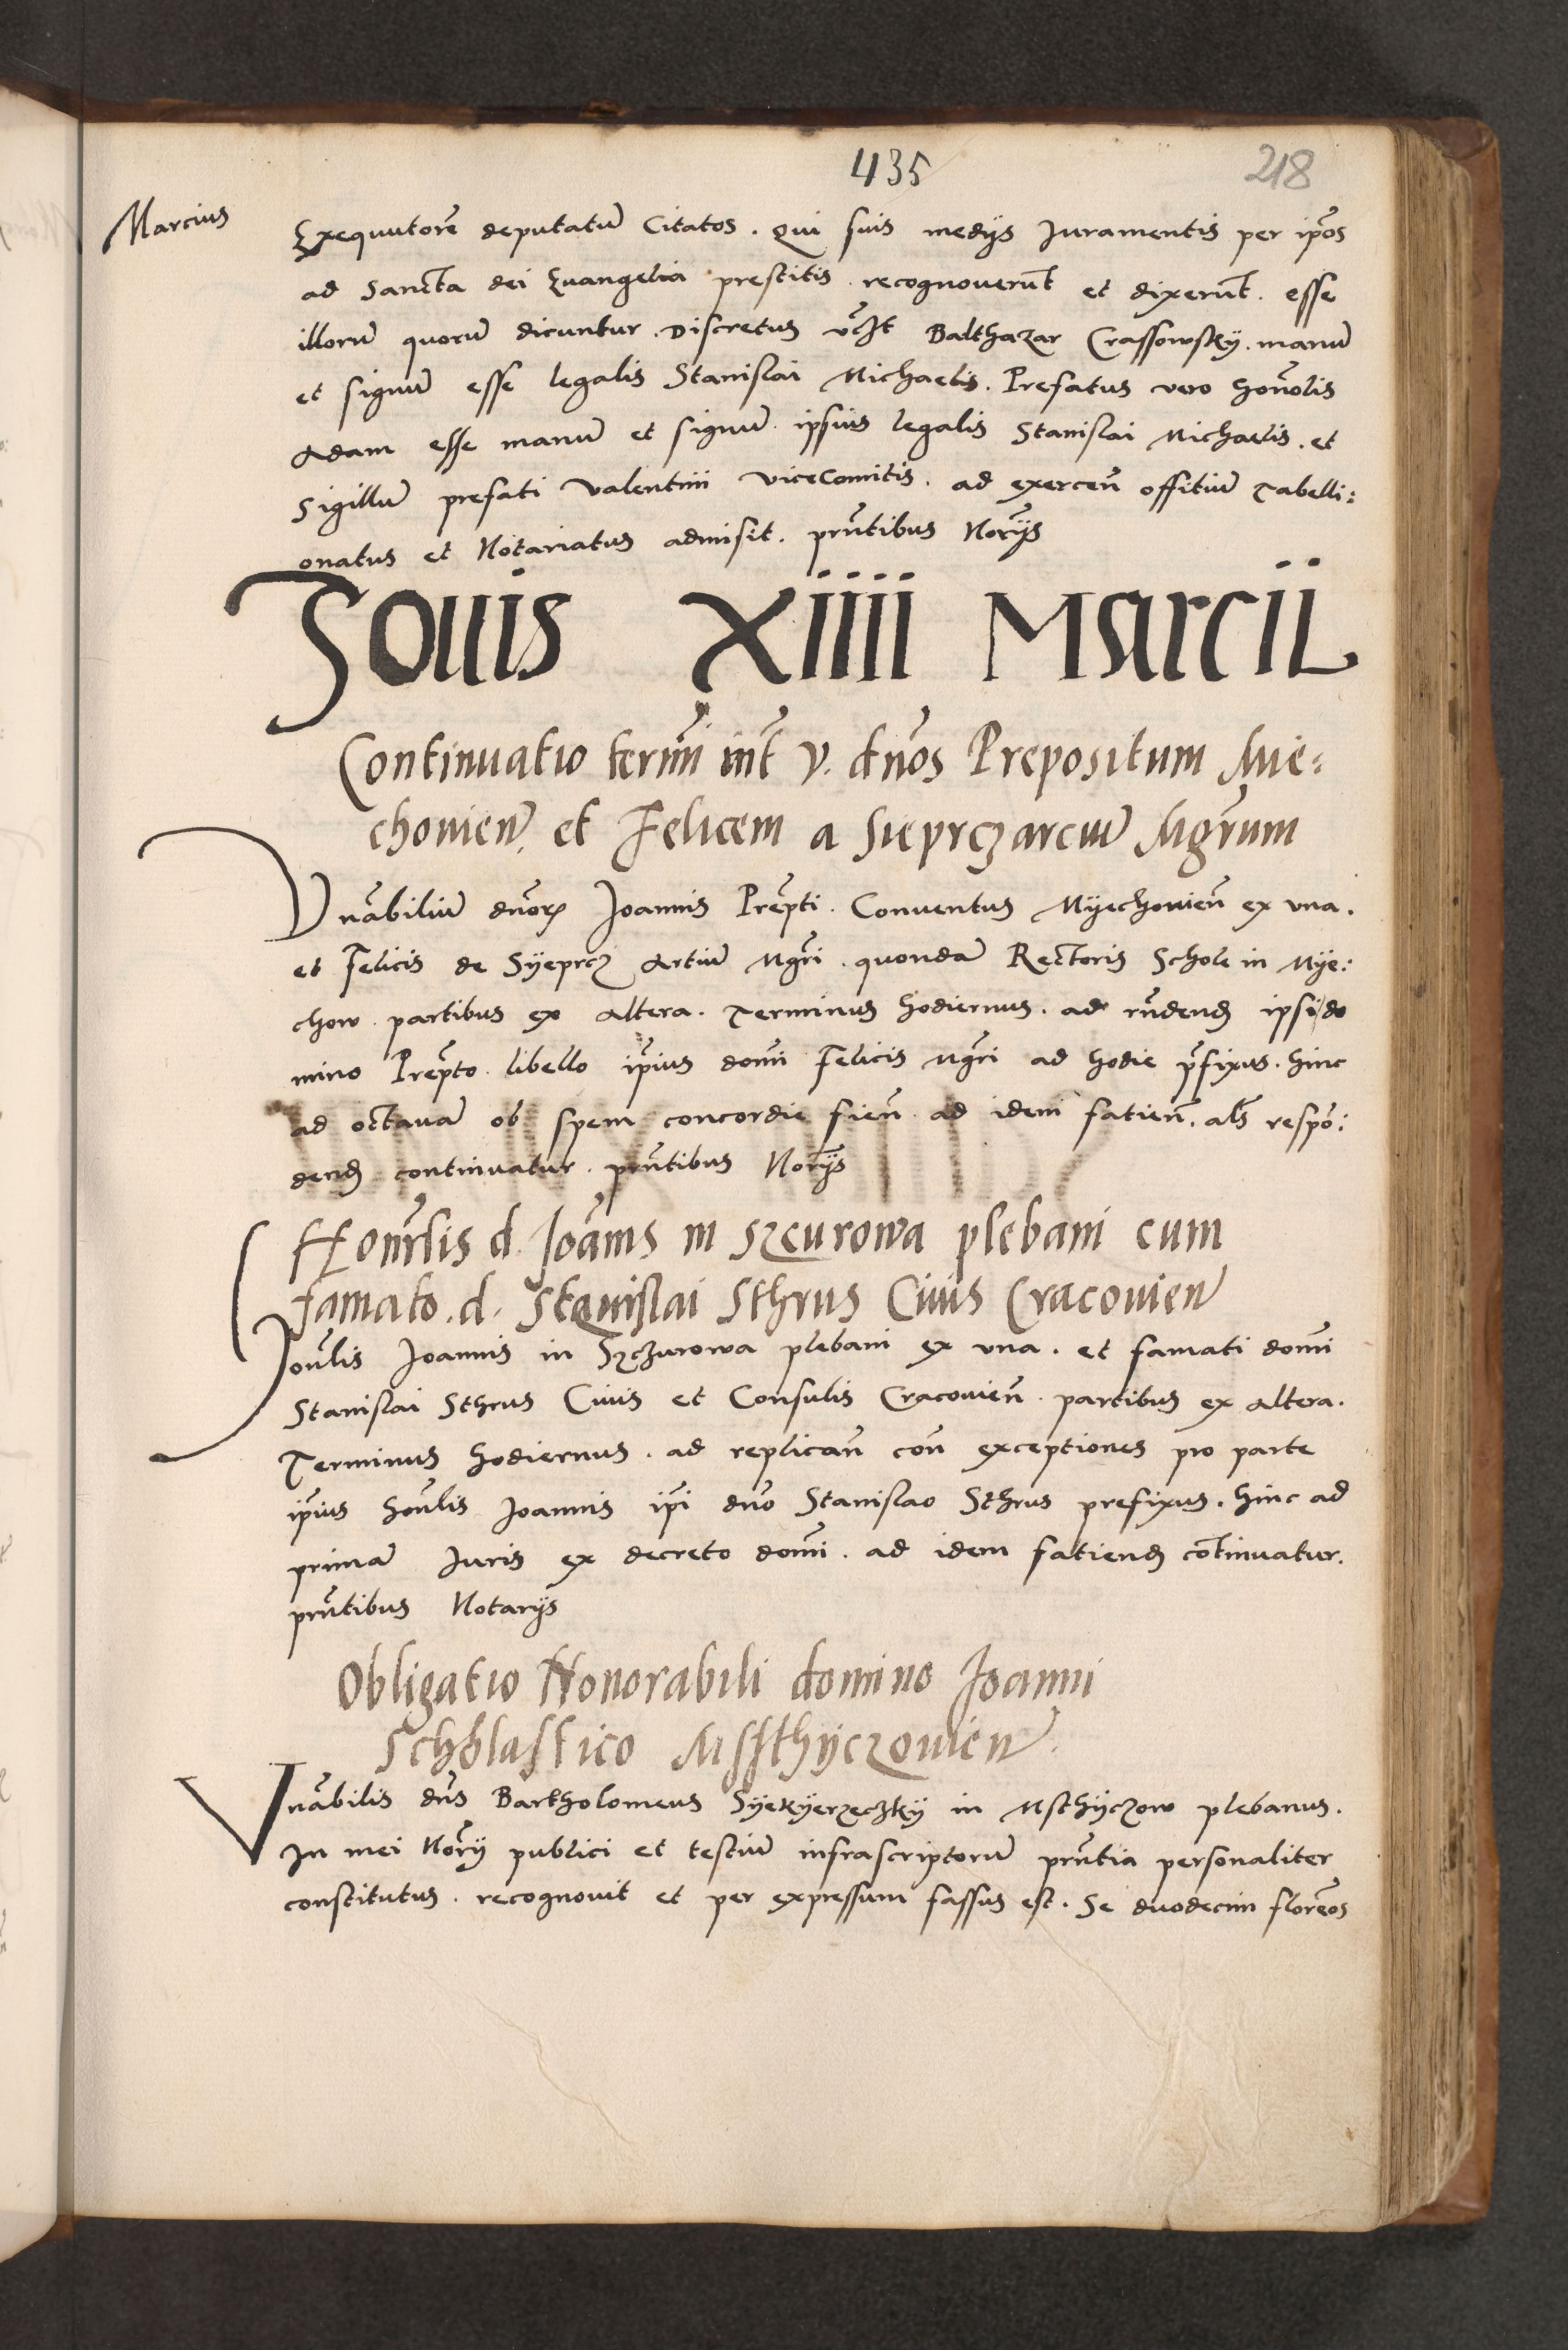 435
218
Marcius
Exequutorē deputatū Citatos. Qui suis medijs Iuramentis per ip̄os
ad Sancta dei Euangelia prestitis. recognouerūt et dixerūt. esse
illorū quorū dicuntur. Discretus Balthazar Crassowsky. manū
et signū esse legalis Stanislai Michaelis. Prefatus vero honōlis
Adam esse manū et signū ipsius legalis Stanislai Michaelis. et
Sigillū prefati Valentini viceComitis. ad exercen̄ offitiū Tabelli:
onatus et Notariatus admisit. prn̄tibus Nor̄ijs
Iouis Xiiii Marcii
Continuatio termi int̄ V. dn̄os Prepositum Mie:
chouien̄ et Felicem a Sieprcz arciū Mgr̄um
Vn̄abiliū dn̄orꝝ Joannis Prep̄ti. Conuentus Myechouien̄ ex vna.
et Felicis de Syeprcz Artiū Mgr̄i. quondā Rectoris Schole in Mye:
chow. partibus ex altera. Terminus hodiernus. ad rn̄dend ipsi do
mino Prep̄to. libello ip̄ius domī Felicis Mgr̄i ad hodie p̄fixus. hinc
ad octauā ob spem concordie fien̄ ad idem fatien̄. als̄ respō:
dend continuatur. prn̄tibus Nor̄ijs
Honr̄lis d. Joānis in Szcurowa plebani cum
famato. d. Stanislai Sthrus Ciuis Cracouien̄
Honr̄lis Joannis in Szczurowa plebani ex vna. et famati domī
Stanislai Sthrus Ciuis et Consulis Cracouien̄ partibus ex altera.
Terminus hodiernus. ad replicān con̄ exceptiones pro parte
ip̄ius hon̄lis Joannis ip̄i dn̄o Stanislao Sthrus prefixus. hinc ad
primā Iuris ex decreto domī. ad idem fatiend cōtinuatur.
prn̄tibus Notarijs
Obligatio Honorabili domino Joanni
Scholastico Mssthyczouien̄
Vn̄abilis dn̄s Bartholomeus Syekyerzeczky in Msthyczow plebanus.
In mei Nor̄ij publici et testiū infrascriptorū prn̄tia personaliter
constitutus. recognouit et per expressum fassus est. Se duodecim florēos